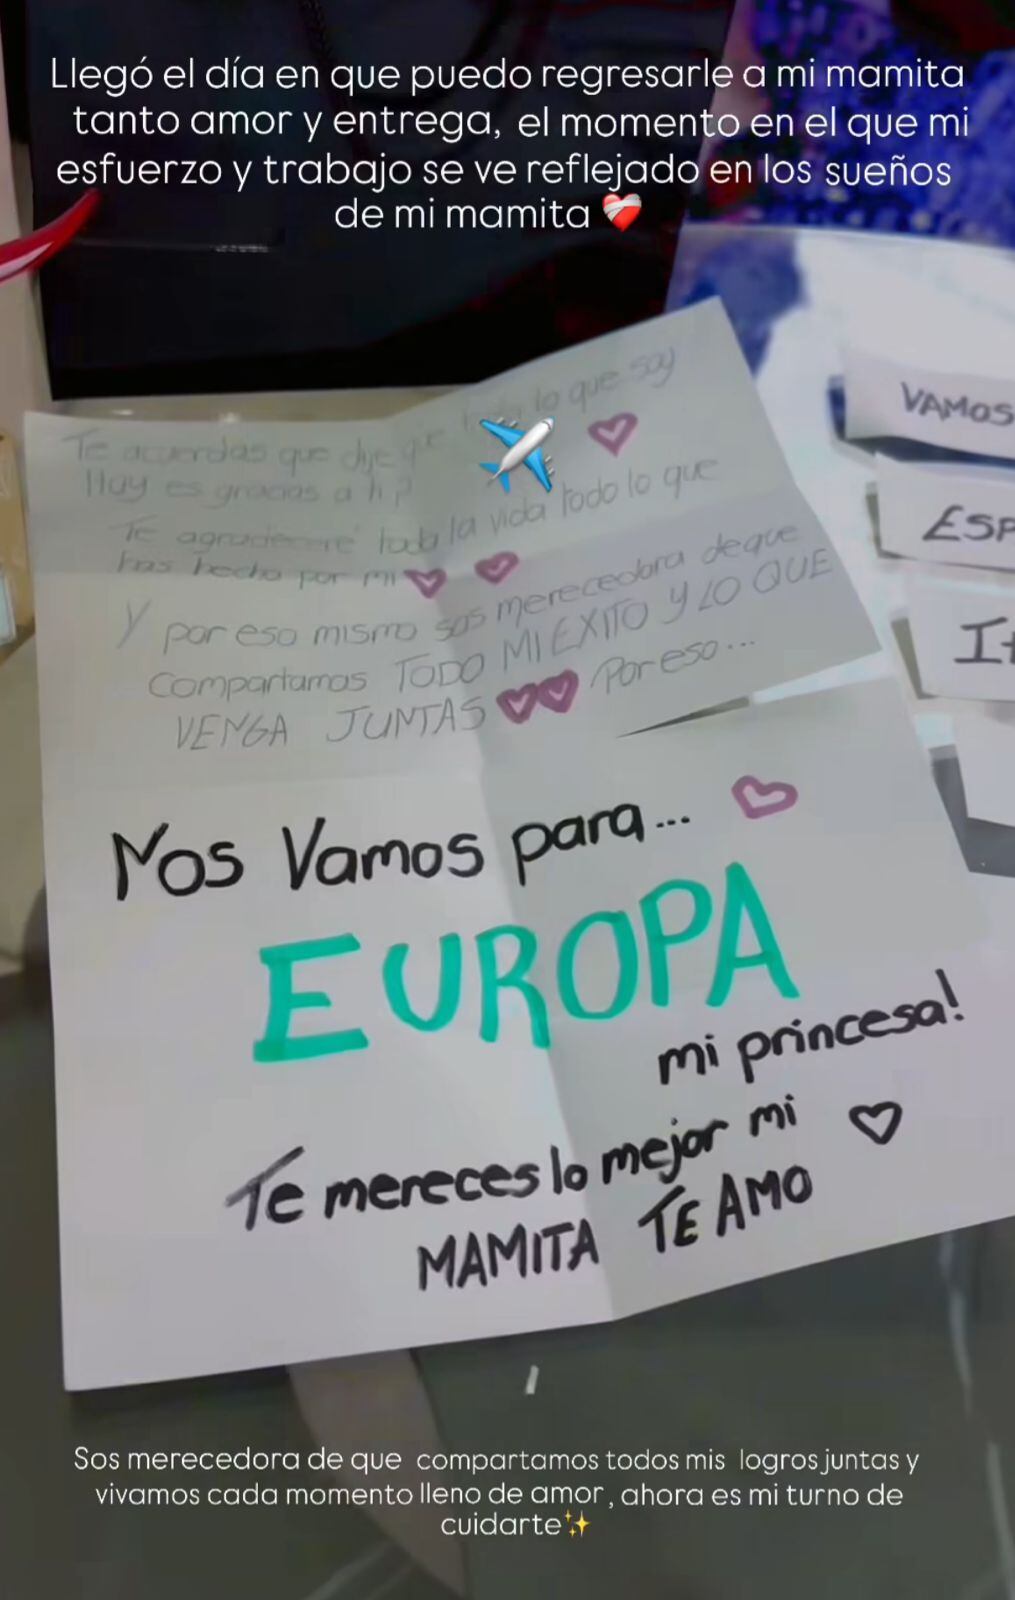 Llegó el día en que puedo regresarle a mi mamita
tanto amor y entrega, el momento en el que mi
esfuerzo y trabajo se ve reflejado en los sueños
de mi mamita ❤️‍🩹
Te acuerdas que dije que todo lo que soy
Hoy es gracias a ti?
Te agradeceré toda la vida todo lo que
has hecho por mi
Y por eso mismo sos merecedora de que
compartamos TODO MI EXITO Y LO QUE
VENGA JUNTAS Por eso...
Nos Vamos para...
EUROPA
mi princesa!
Te mereces lo mejor mi
MAMITA TE AMO
VAMOS
ESP
Sos merecedora de que compartamos todos mis logros juntas y
vivamos cada momento lleno de amor, ahora es mi turno de
cuidarte✨